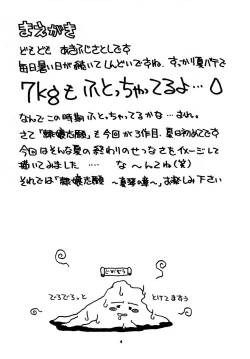 まえがき
どもども あきふじさとしです
毎日暑い日が続いてしんどいですね すっかり夏バテで
7kgもふとっちゃてるよ…
なんでこの時期ふとっちゃってるかな…まれ。
さて「隷嬢志願」も今回が3作目。夏は初めてです
今回はそんな夏の終わりのせつなさをイメージして
描いてみました……な〜んてね(笑)
それでは「隷嬢志願 〜真琴の章〜」お楽しみ下さい
でろでろっと
とけてますぅ
4